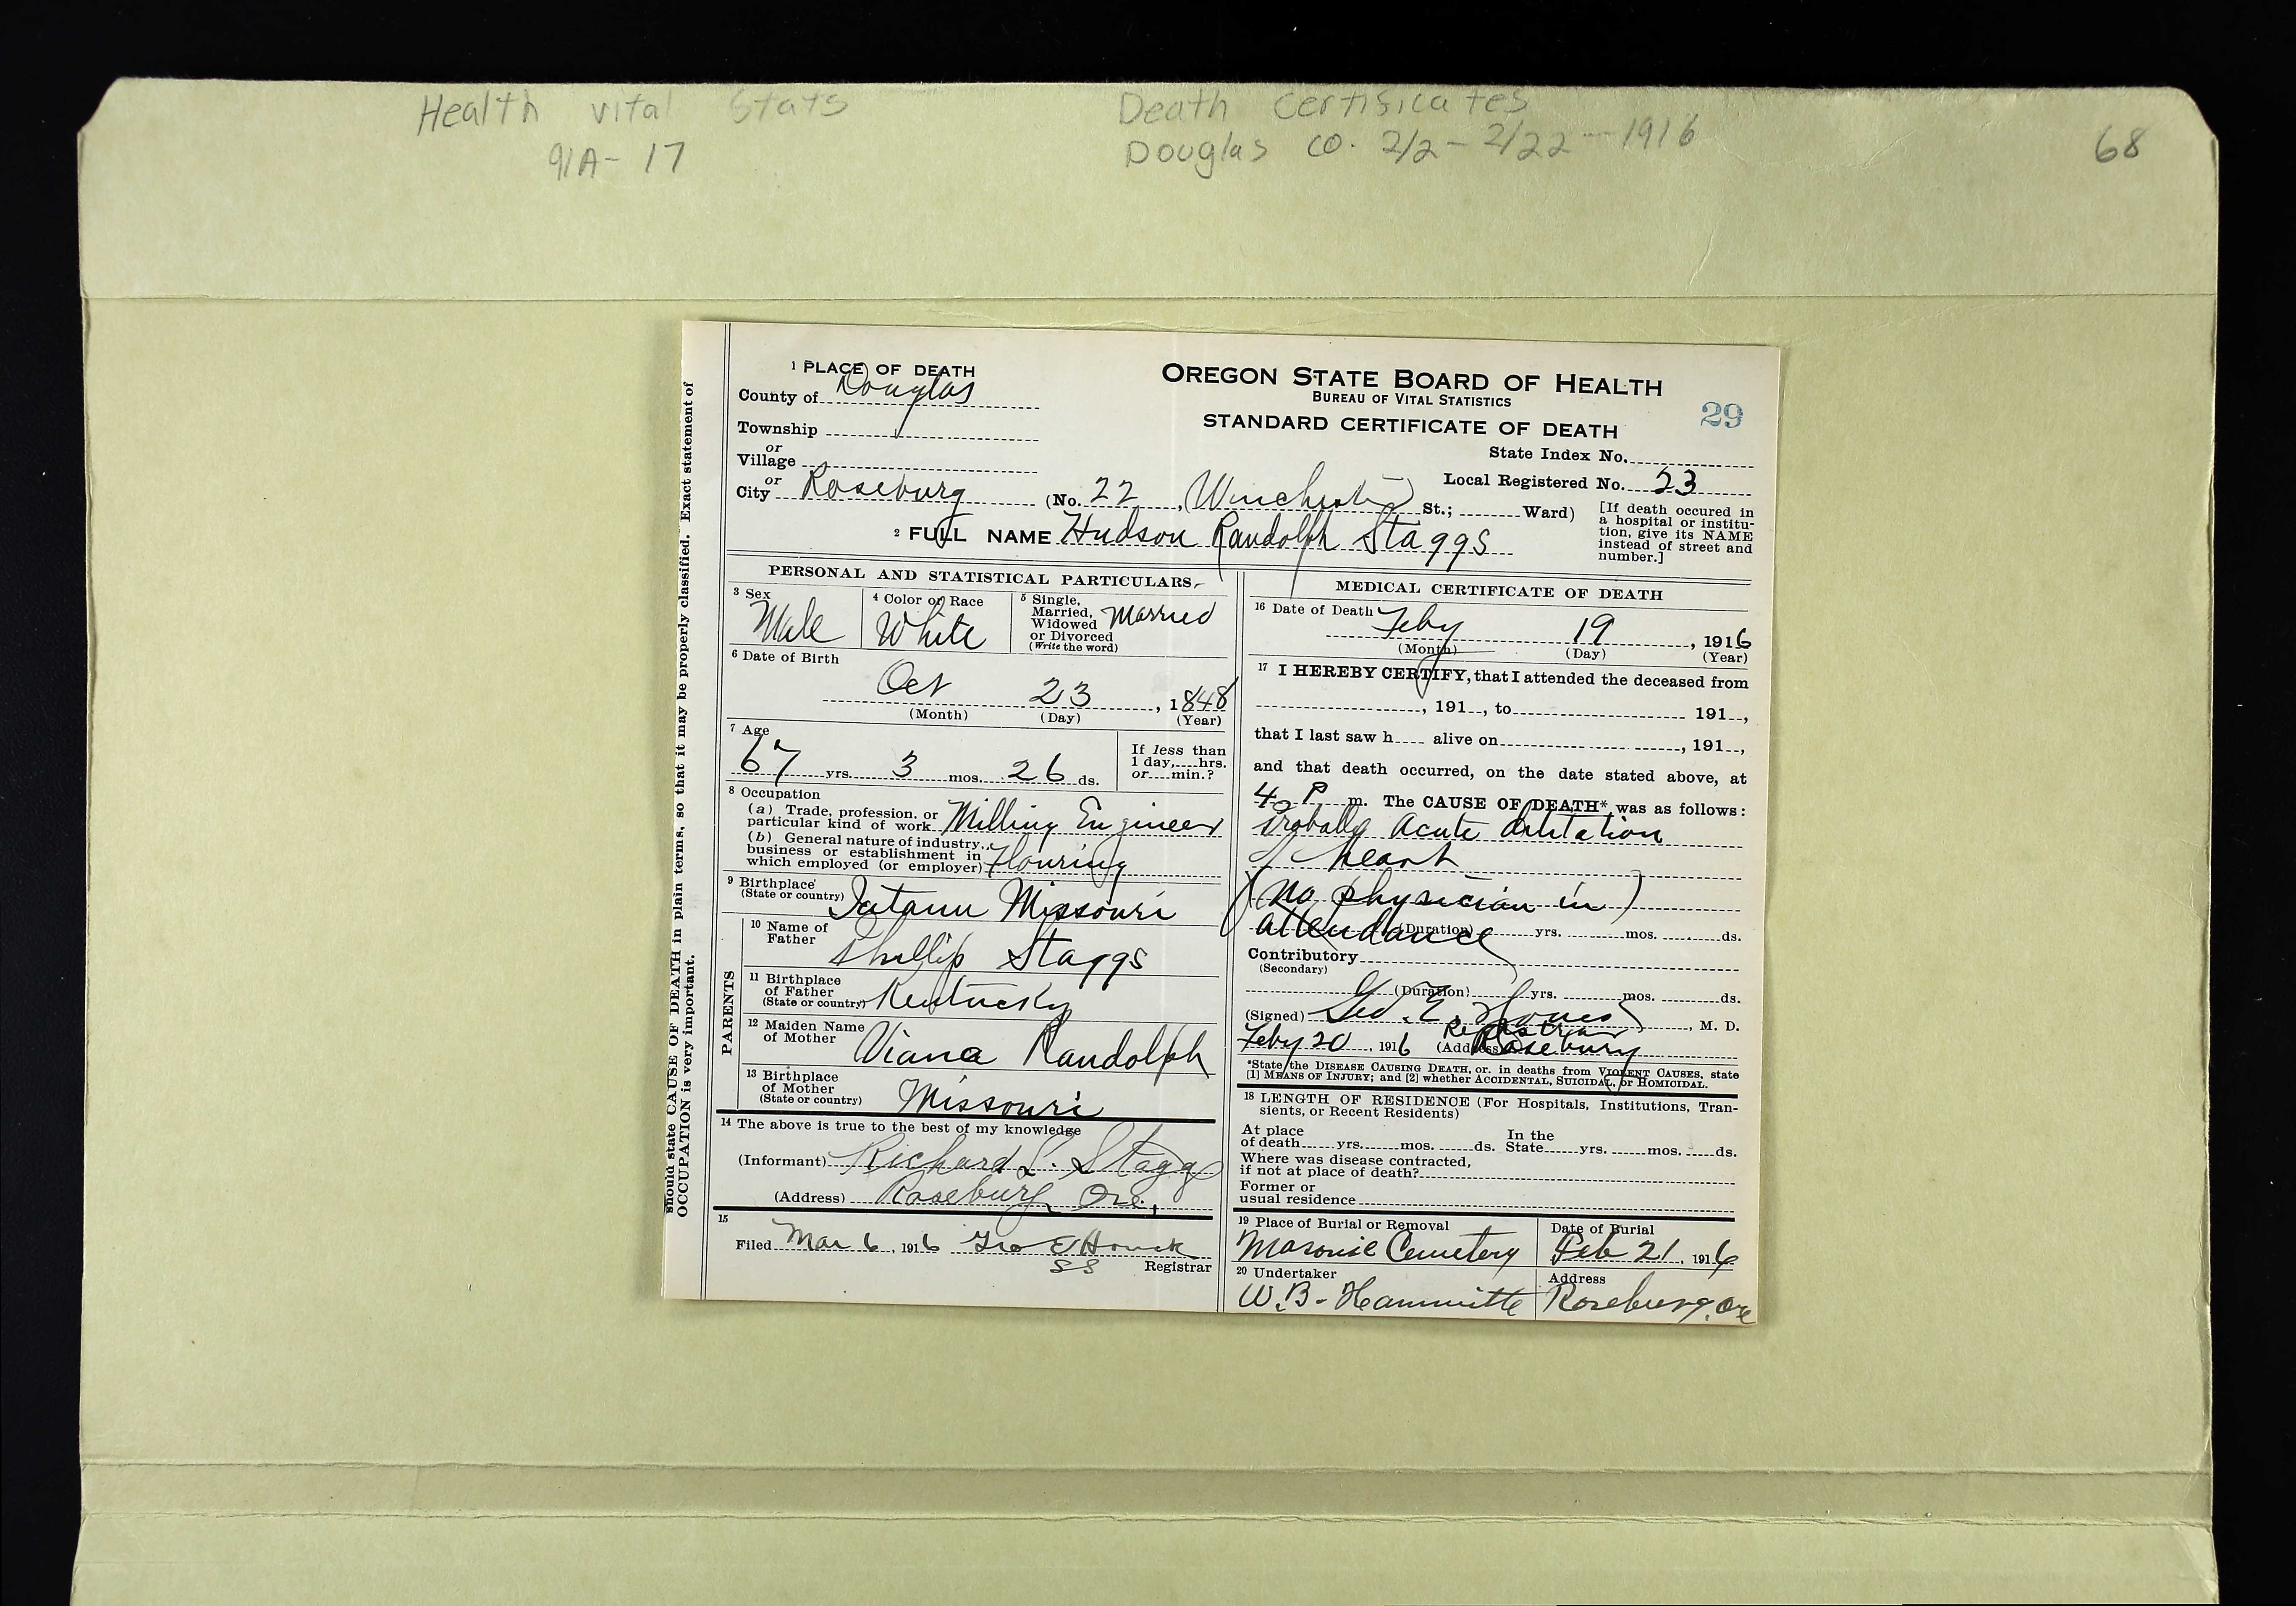 Health vital Stats
91A-17
Death Certificates
Douglas co. 2/2 - 2/22 - 1916
68
should state CAUSE OF DEATH in plain terms, so that it may be properly classified. Exact statement of
OCCUPATION is very important.
1 PLACE OF DEATH
County of Douglas
Township
or
Village
or
City Roseburg (No. 22, Winchester St.; Ward)
OREGON STATE BOARD OF HEALTH
BUREAU OF VITAL STATISTICS
STANDARD CERTIFICATE OF DEATH
29
State Index No.
Local Registered No. 23
[If death occured in
a hospital or institu-
tion, give its NAME
instead of street and
number.]
2 FULL NAME Hudson Randolph Staggs
PERSONAL AND STATISTICAL PARTICULARS
3 Sex
Male
4 Color or Race
White
5 Single,
Married,
Widowed
or Divorced
(Write the word)
Married
6 Date of Birth
Oct 23, 1848
(Month) (Day) (Year)
7 Age
67 yrs. 3 mos. 26 ds.
If less than
1 day, hrs.
or min.?
8 Occupation
(a) Trade, profession, or
particular kind of work Milling Engineer
(b) General nature of industry,
business or establishment in
which employed (or employer) Flouring
9 Birthplace
(State or country) Iatann Missouri
PARENTS
10 Name of
Father
Phillip Staggs
11 Birthplace
of Father
(State or country) Kentucky
12 Maiden Name
of Mother
Viana Randolph
13 Birthplace
of Mother
(State or country)
Missouri
14 The above is true to the best of my knowledge
(Informant) Richard L. Staggs
(Address) Roseburg Ore.
15
Filed Mar 6, 1916 Geo E Houck
SS Registrar
MEDICAL CERTIFICATE OF DEATH
16 Date of Death
Feby 19, 1916
(Month) (Day) (Year)
17 I HEREBY CERTIFY, that I attended the deceased from
, 191 , to 191 ,
that I last saw h alive on , 191 ,
and that death occurred, on the date stated above, at
4 P m. The CAUSE OF DEATH* was as follows:
Probably Acute dilitation
of heart
(no physician in)
attendance (Duration) yrs. mos. ds.
Contributory
(Secondary)
(Duration) yrs. mos. ds.
(Signed) Geo. E. Houck, M. D.
Registrar
Feby 20, 1916 (Address) Roseburg
*State the DISEASE CAUSING DEATH, or, in deaths from VIOLENT CAUSES, state
[1] MEANS OF INJURY; and [2] whether ACCIDENTAL, SUICIDAL, or HOMICIDAL.
18 LENGTH OF RESIDENCE (For Hospitals, Institutions, Tran-
sients, or Recent Residents)
At place
of death yrs. mos. ds. In the
State yrs. mos. ds.
Where was disease contracted,
if not at place of death?
Former or
usual residence
19 Place of Burial or Removal
Masonic Cemetery
Date of Burial
Feb 21, 1916
20 Undertaker
W. B. Hammitte
Address
Roseburg, Ore